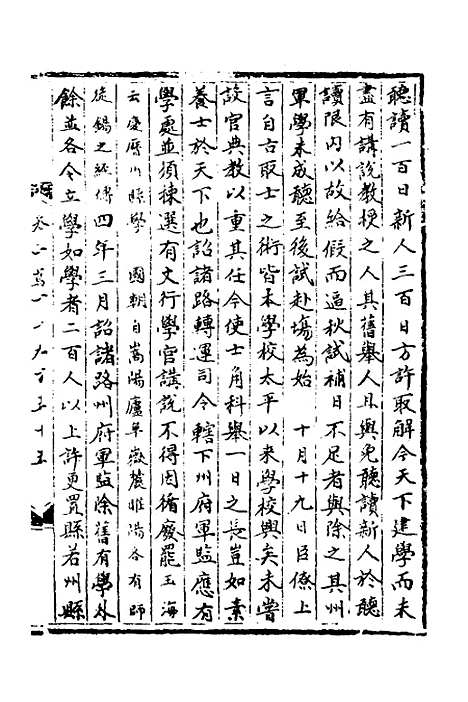 聽讀一百日新人三百日方許取解今天下建學而未
盡有講說教授之人其舊舉人且與免聽讀新人於聽
讀限内以故給假而逼秋試補日不足者與除之其州
軍學未成聽至後試赴場為始　十月十九日臣僚上
言自古取士之術皆本學校太平以來學校興矣未嘗
設官典教以重其任令使士角科舉一日之長豈如素
養士於天下也詔諸路轉運司令轄下州府軍監應有
學處並須揀選有文行學官講說不得因循廢罷玉海
云慶曆州縣學　國朝自嵩陽廬阜嶽麓睢陽各有師
徒錫之經傳四年三月詔諸路州府軍監除舊有學外
餘並各令立學如學者二百人以上許更置縣若州縣
卷二萬一千九百五十五